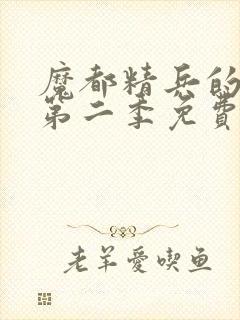 魔都精兵的
第二季免費
老羊愛喫鱼